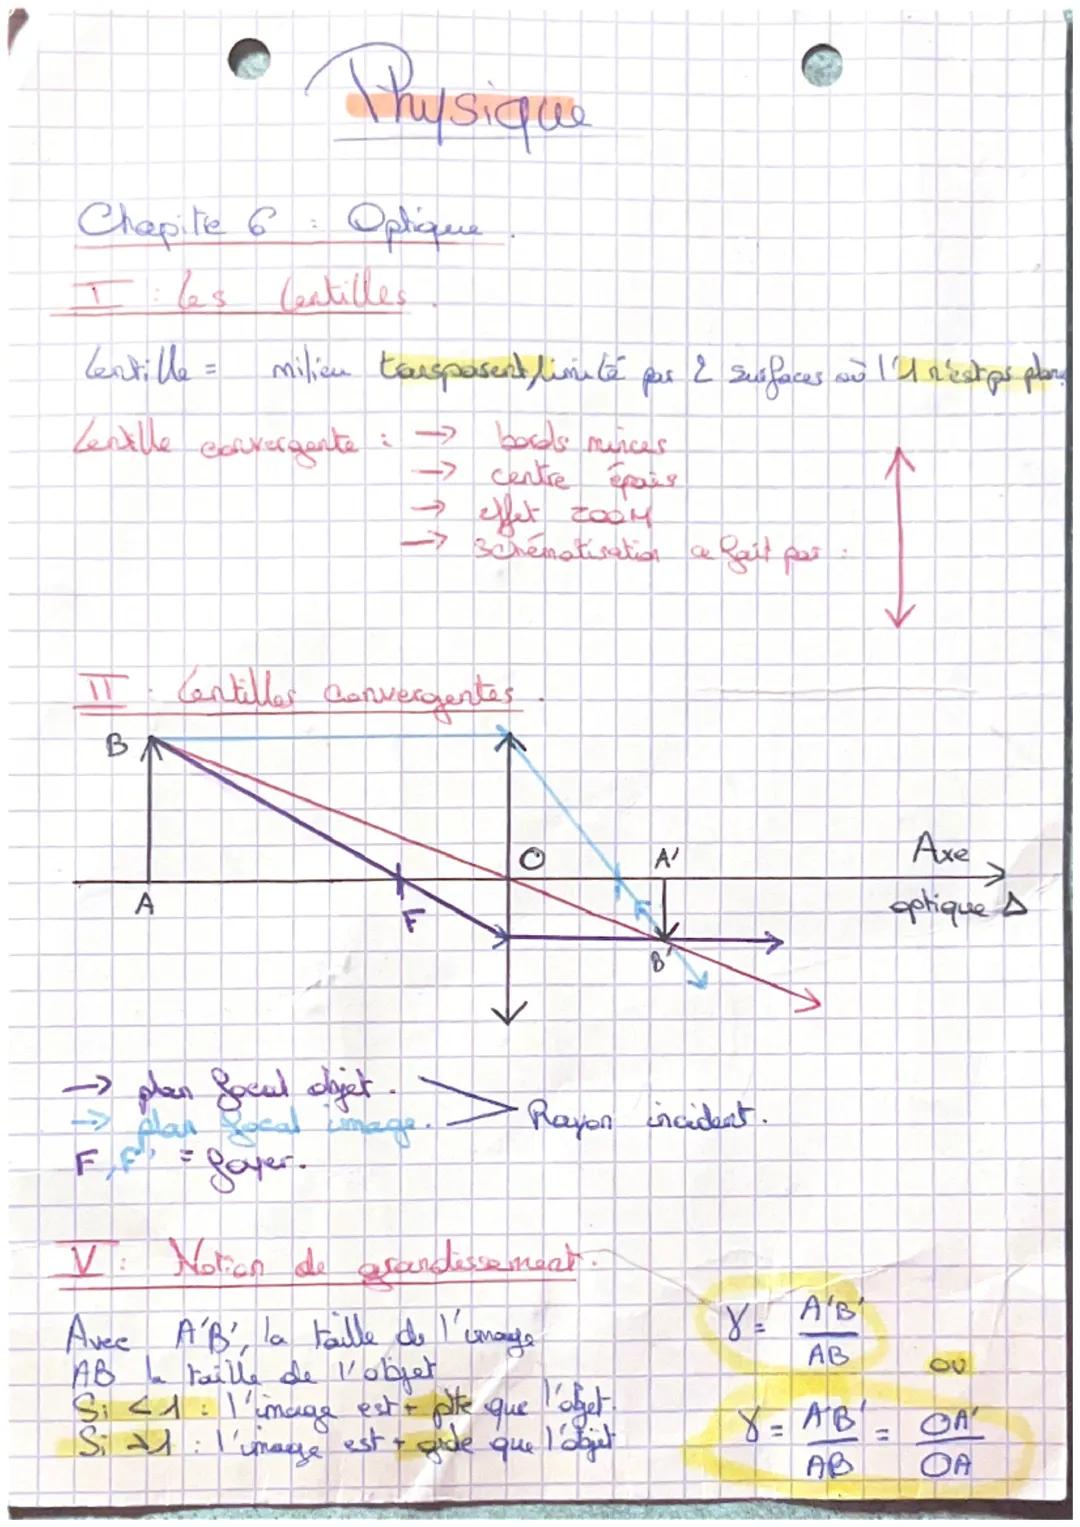 Physique
Chapitre 6 : Optique.
I : Les lentilles.
Lentille = milieu transparent, limité par 2 surfaces où l'1 n'est ps plane
Lentille convergente : → bords minces
→ centre épais
→ effet ZOOM
→ schématisation ce fait par :
II : Lentilles convergentes.
B
O
A'
Axe
optique Δ
A
F
F'
B'
→ plan focal objet.
→ plan focal image.
Rayon incident.
F, F' = foyer.
V : Notion de grandissement.
Avec A'B', la taille de l'image
AB la taille de l'objet
Si <1 : l'image est + pte que l'objet.
Si >1 : l'image est + gde que l'objet
γ = A'B' / AB
ou
γ = A'B' / AB = OA' / OA